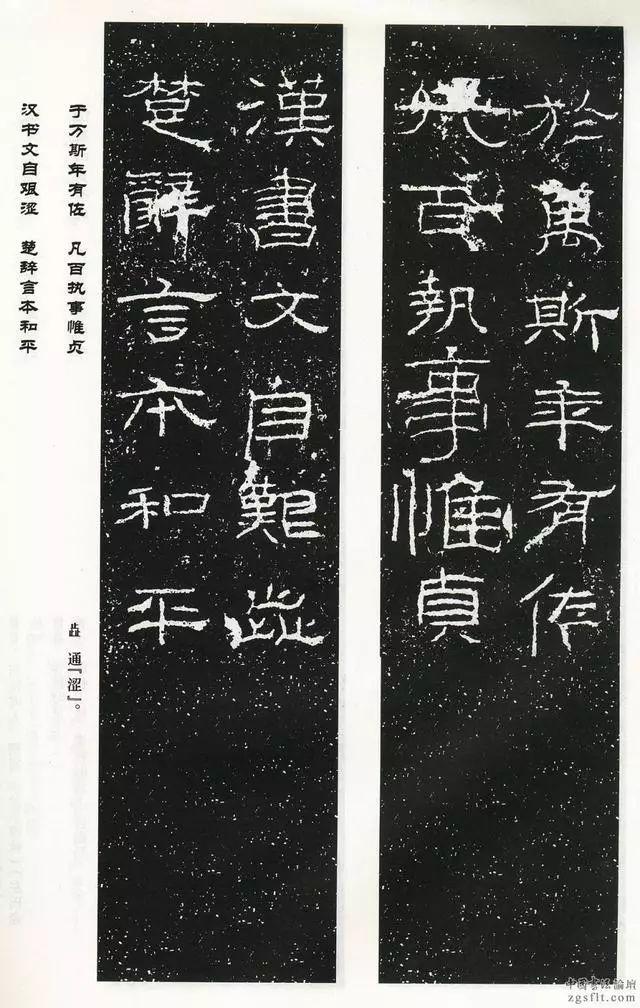 於萬斯年有佐
凡百執事惟貞
漢書文自艱歮
楚辭言本和平
于万斯年有佐 凡百执事惟贞
汉书文自艰涩 楚辞言本和平
歮 通『涩』。
中国书法论坛
zgsflt.com